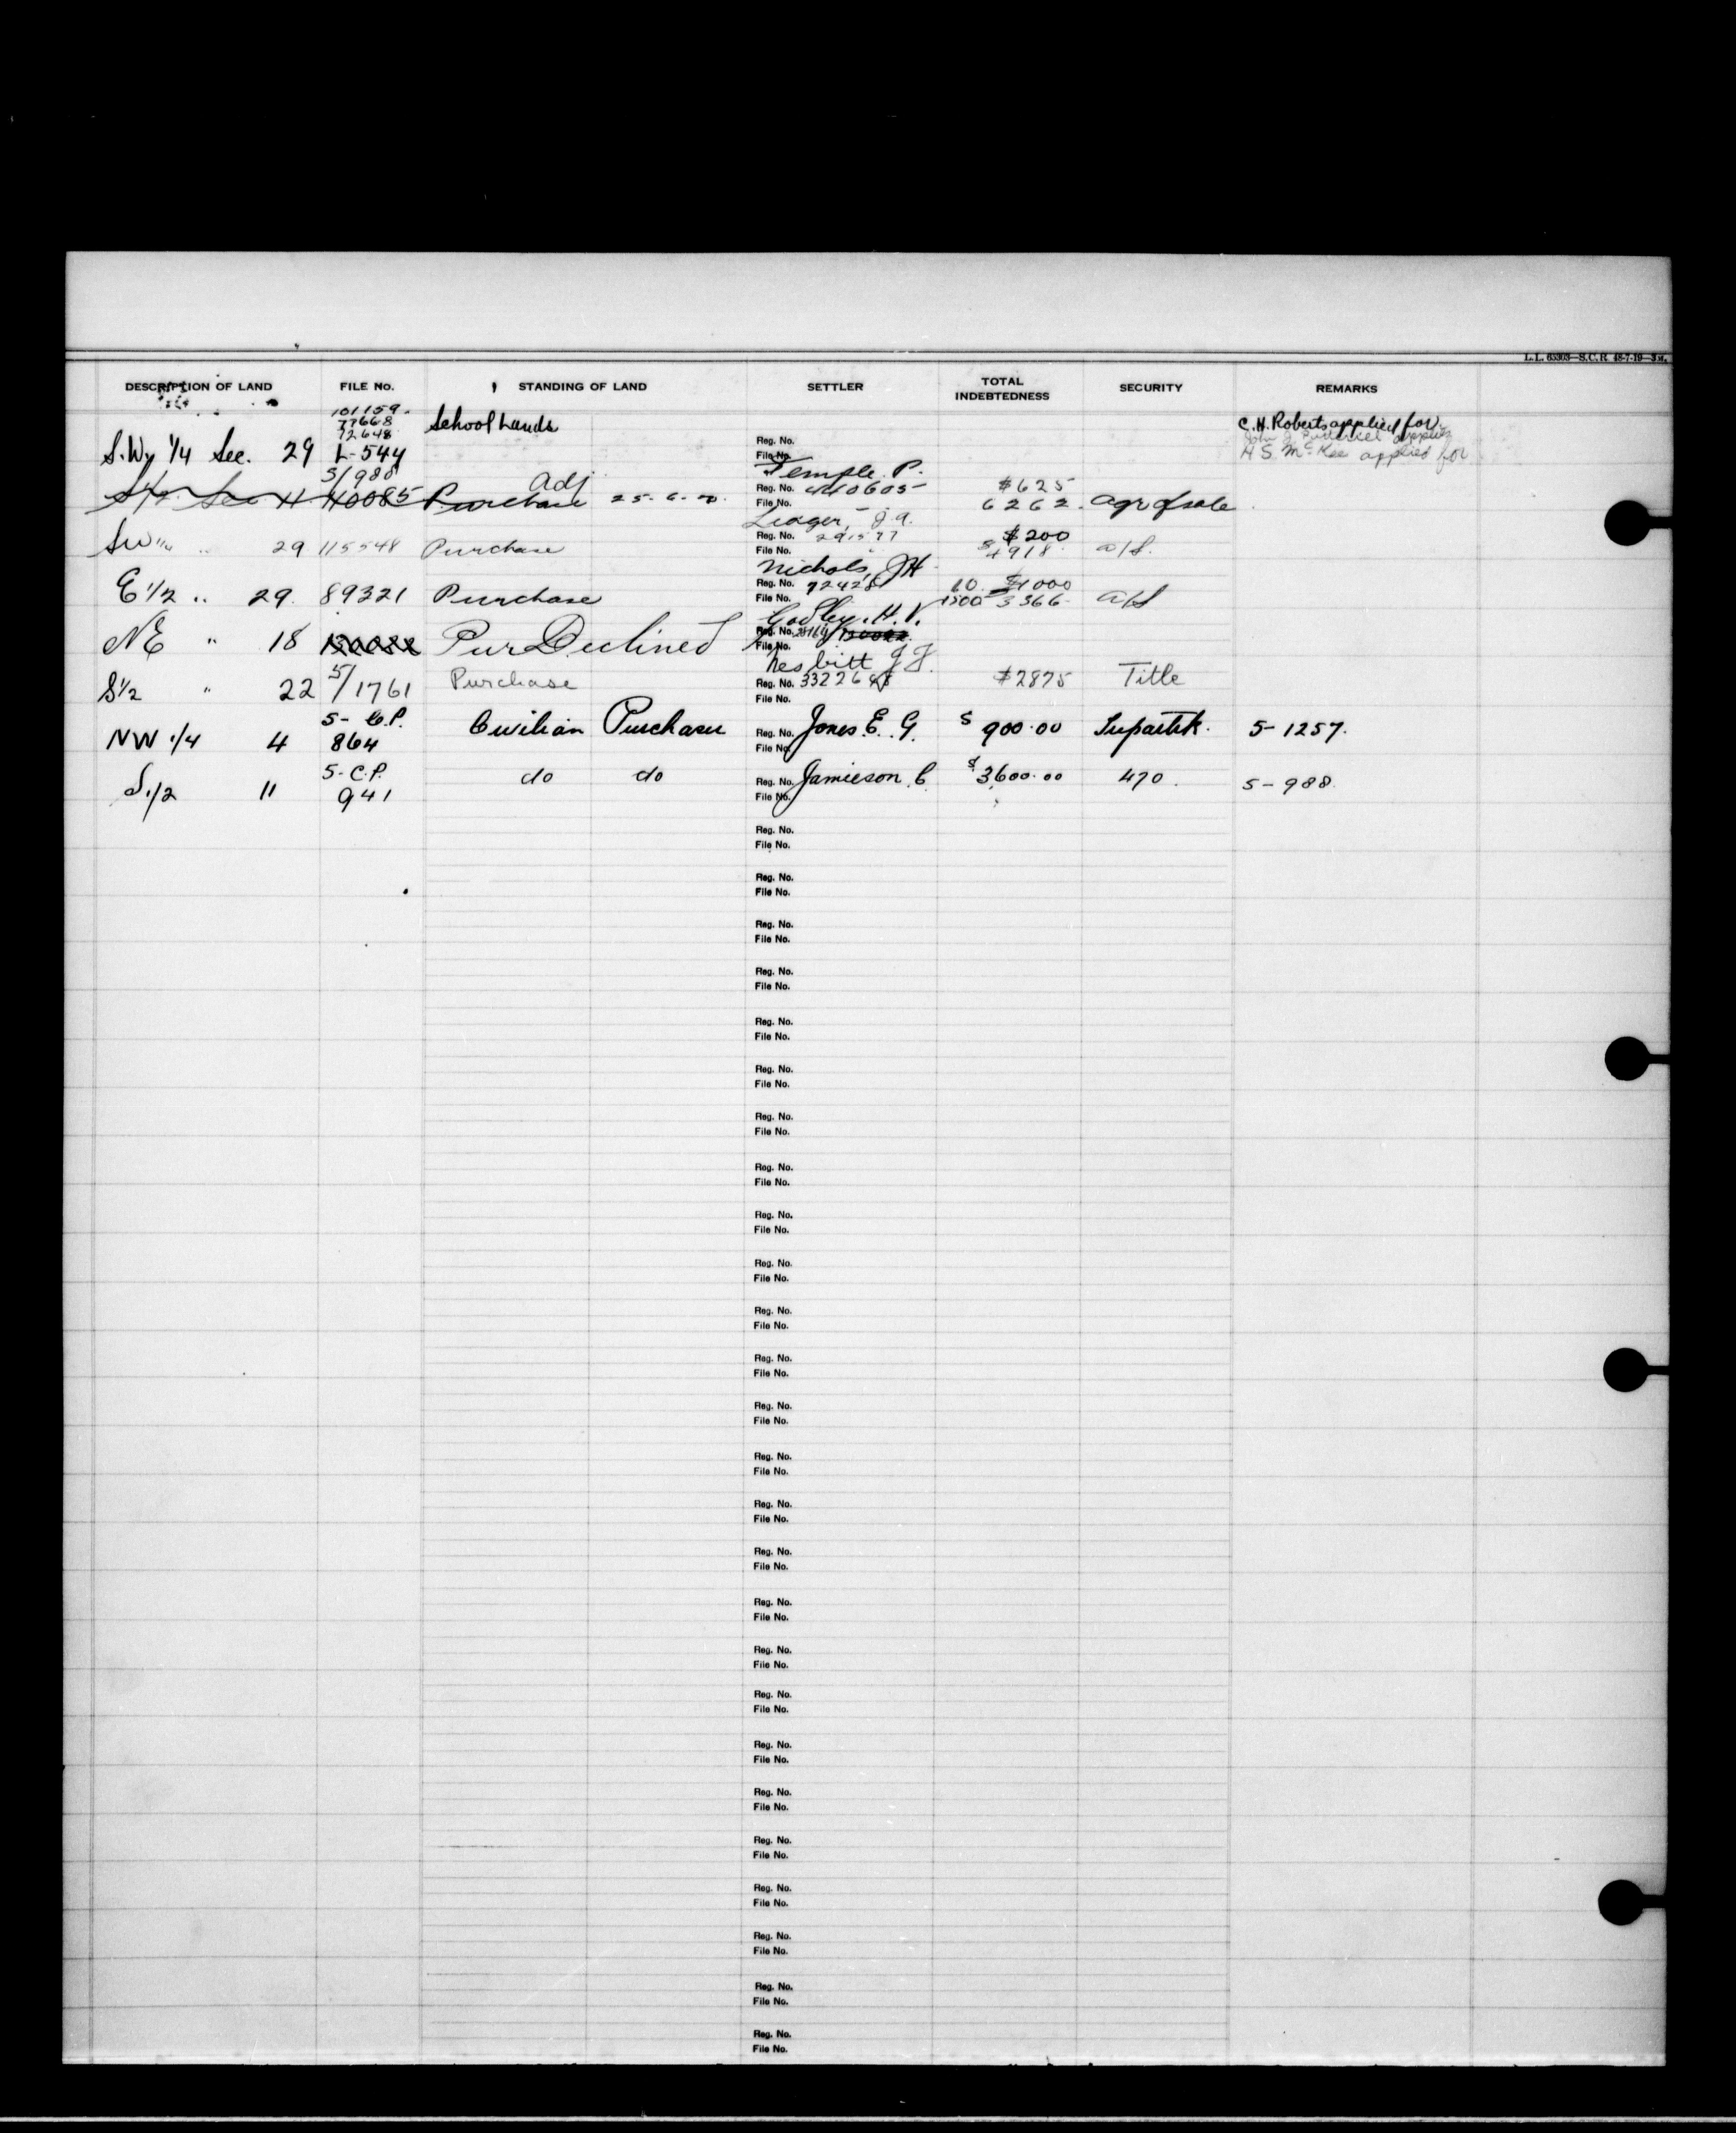 L.L. 65303—S.C.R. 48-7-19—3M.
DESCRIPTION OF LAND FILE No. STANDING OF LAND SETTLER TOTAL INDEBTEDNESS SECURITY REMARKS
101159 School Lands C.H. Roberts applied for
77668
72648 Reg. No.
S.W. 1/4 Sec. 29 L-544 File No. H S. McKee applied for
5/988 Adj Temple. P. $625
Sec 40085 Purchase 25-6-20. Reg. No. 440605 6262. agr of sale
File No.
J.A. $200
SW 1/4 .. 29 115548 Purchase Reg. No. 4918 a/s.
File No.
Nichols, JH $4000
E 1/2 .. 29. 89321 Purchase Reg. No. 92428 3366 a/s
File No. 1500
Godley. H.V.
NE " 18 Pur Declined Reg. No.
File No.
Nesbitt J J.
S 1/2 " 22 5/1761 Purchase Reg. No. 332268 $2875 Title
File No.
5- C.P. Civilian Purchaser Reg. No. Jones E. G. $900.00 5-1257.
NW 1/4 4 864 File No.
5-C.P. do do Reg. No. Jamieson C $3600.00 470. 5-988.
S 1/2 11 941 File No.
Reg. No.
File No.
Reg. No.
File No.
Reg. No.
File No.
Reg. No.
File No.
Reg. No.
File No.
Reg. No.
File No.
Reg. No.
File No.
Reg. No.
File No.
Reg. No.
File No.
Reg. No.
File No.
Reg. No.
File No.
Reg. No.
File No.
Reg. No.
File No.
Reg. No.
File No.
Reg. No.
File No.
Reg. No.
File No.
Reg. No.
File No.
Reg. No.
File No.
Reg. No.
File No.
Reg. No.
File No.
Reg. No.
File No.
Reg. No.
File No.
Reg. No.
File No.
Reg. No.
File No.
Reg. No.
File No.
Reg. No.
File No.